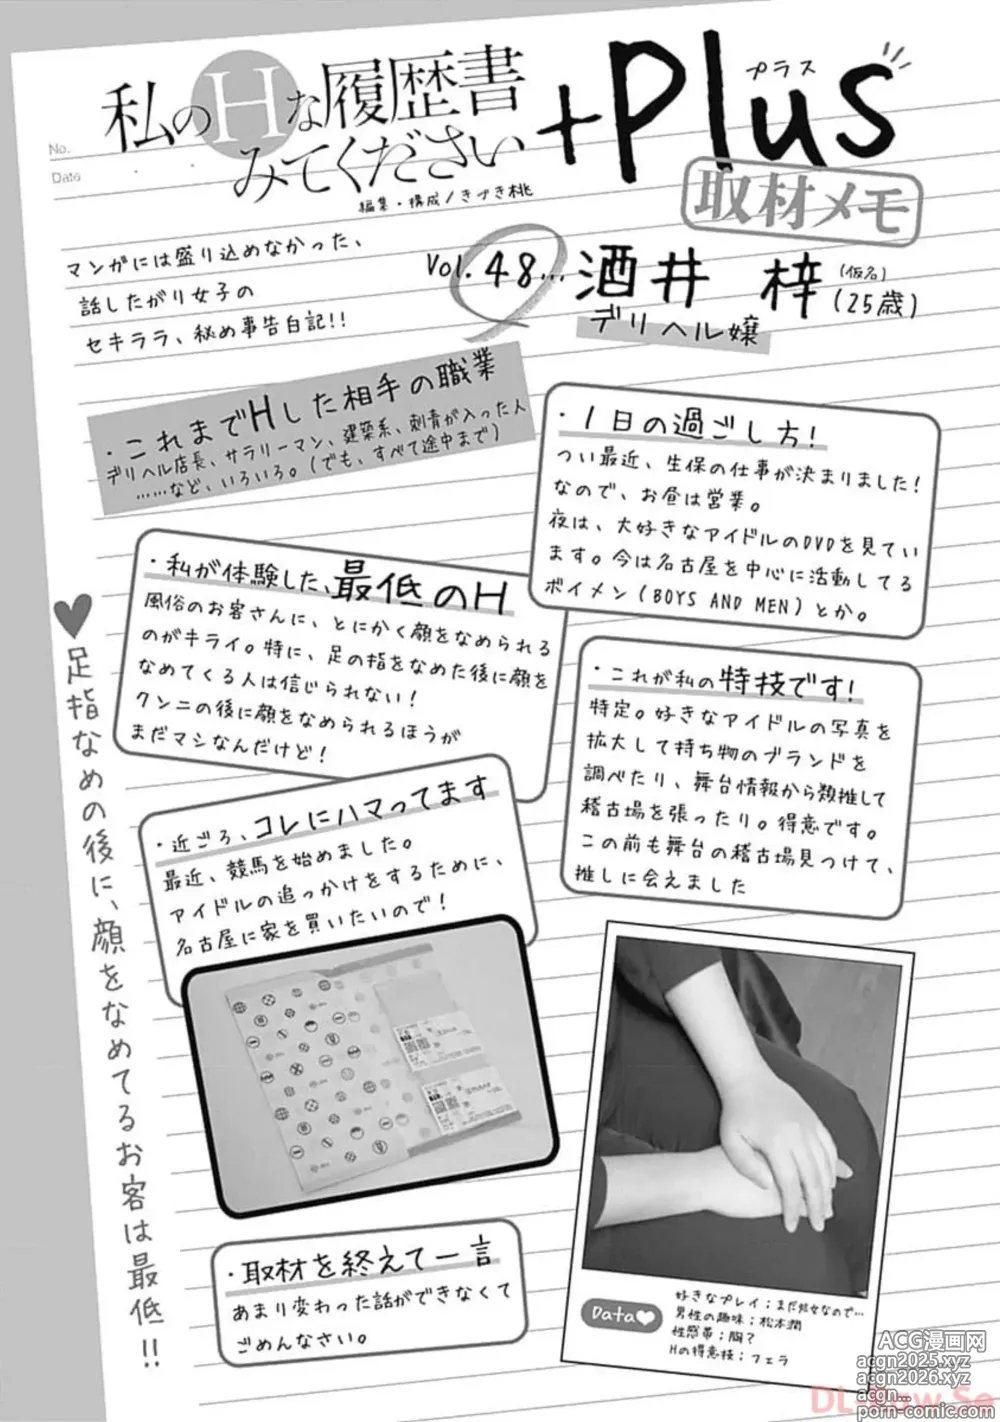 No.
Date
私のHな履歴書
みてください
+Plus
プラス
取材メモ
編集・構成/きづき桃
マンガには盛り込めなかった、
話したがり女子の
セキララ、秘め事告白記!!
Vol.48...
酒井 梓
(仮名)
(25歳)
デリヘル嬢
・これまでHした相手の職業
デリヘル店長、サラリーマン、建築系、刺青が入った人
……など、いろいろ。(でも、すべて途中まで)
・1日の過ごし方!
つい最近、生保の仕事が決まりました!
なので、お昼は営業。
夜は、大好きなアイドルのDVDを見てい
ます。今は名古屋を中心に活動してる
ボイメン(BOYS AND MEN)とか。
・私が体験した、最低のH
風俗のお客さんに、とにかく顔をなめられる
のがキライ。特に、足の指をなめた後に顔を
なめてくる人は信じられない!
クンニの後に顔をなめられるほうが
まだマシなんだけど!
・これが私の特技です!
特定。好きなアイドルの写真を
拡大して持ち物のブランドを
調べたり、舞台情報から類推して
稽古場を張ったり。得意です。
この前も舞台の稽古場見つけて、
推しに会えました
・近ごろ、コレにハマってます
最近、競馬を始めました。
アイドルの追っかけをするために、
名古屋に家を買いたいので!
♥足指なめの後に、顔をなめてるお客は最低!!
・取材を終えて一言
あまり変わった話ができなくて
ごめんなさい。
Data♥
好きなプレイ;まだ処女なので…
男性の趣味;松本潤
性感帯;胸?
Hの得意技;フェラ
ACG漫画网
acgn2025.xyz
acgn2026.xyz
acgn...
porn-comic.com